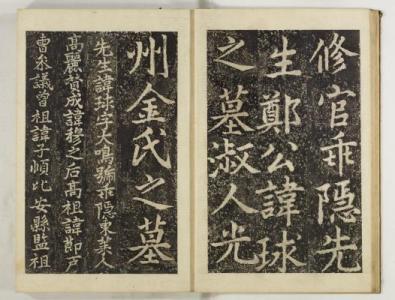 修官乖隠先
生鄭公諱球
之墓淑人光
州金氏之墓
先生諱球字大鳴號乖隠東萊人
高麗贊成諱穆之后高祖諱節戶
曹參議曾祖諱子順比安縣監祖